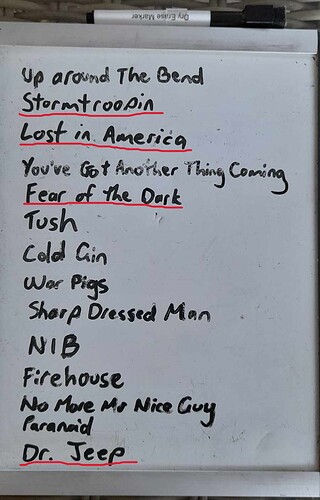 Dry Erase Marker
Up around The Bend
Stormtroopin
Lost in America
You've Got Another Thing Coming
Fear of the Dark
Tush
Cold Gin
War Pigs
Sharp Dressed Man
NIB
Firehouse
No More Mr Nice Guy
Paranoid
Dr. Jeep